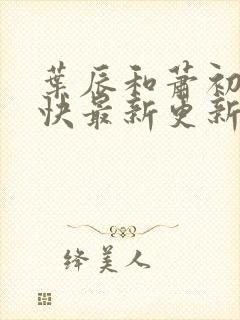 葉辰和蕭初
快最新更新
絳美人